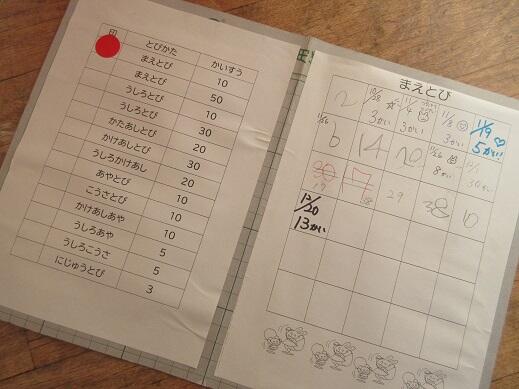 とびかた かいすう
まえとび 10
まえとび 50
うしろとび 10
うしろとび 30
かたあしとび 20
かけあしとび 30
うしろかけあし 20
あやとび 10
こうさとび 10
かけあしあや 10
うしろあや 5
うしろこうさ 5
にじゅうとび 3
まえとび
2
3かい
3かい
11/8 3かい
11/9 5かい!
11/26 6
14
20
8かい
30 19
17 18
29
38
10
12/20
13かい